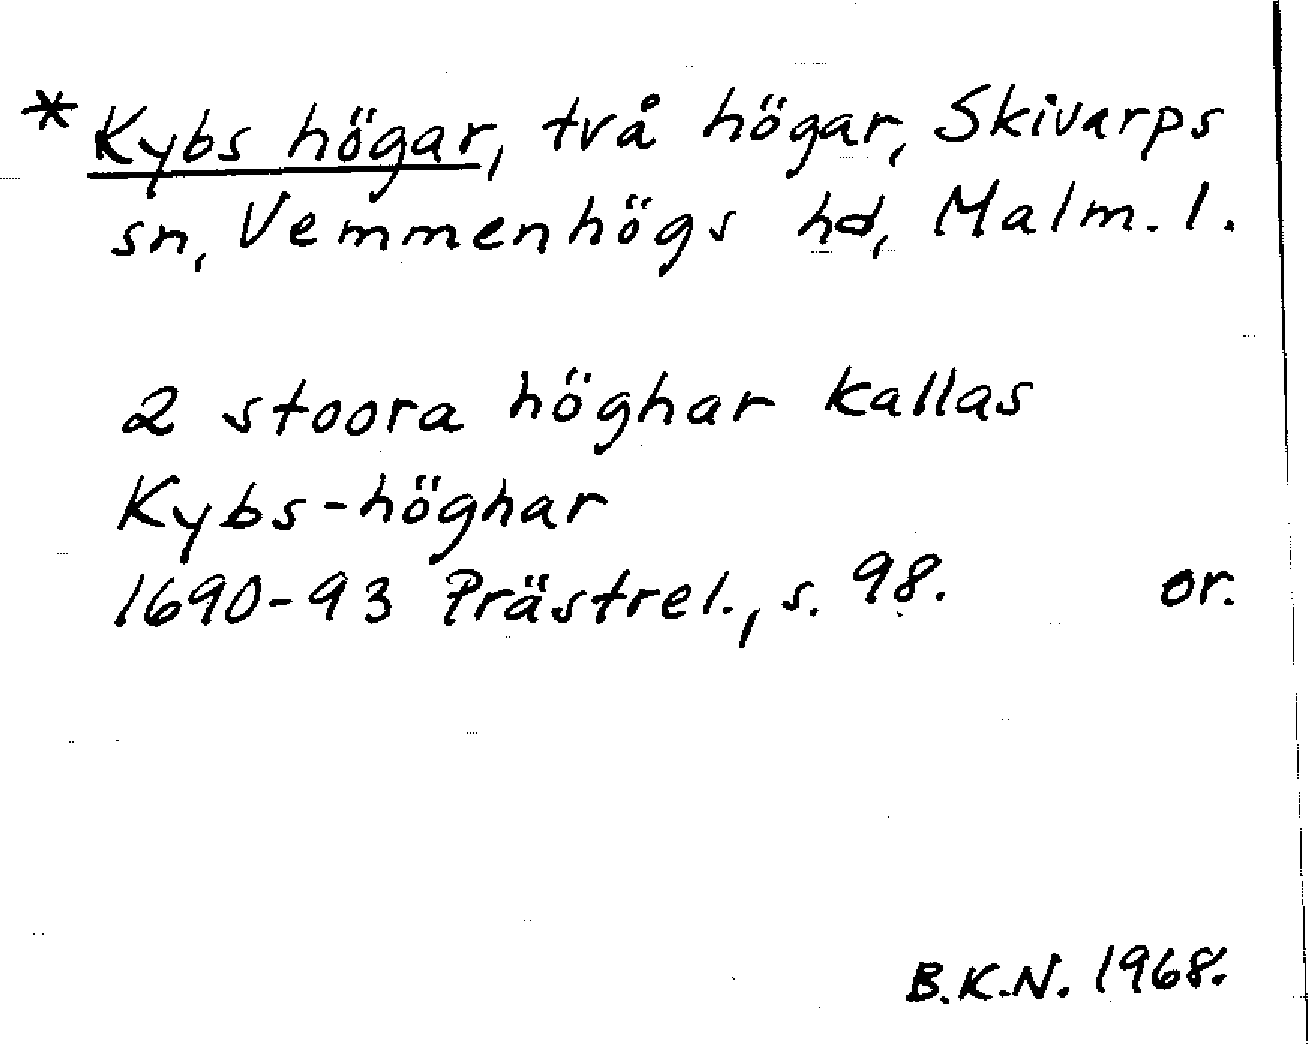 * Kybs högar, två högar, Skivarps
sn, Vemmenhögs hd, Malm. l.
2 stoora höghar kallas
Kybs-höghar
1690-93 Prästrel., s. 98. or.
B.K.N. 1968.